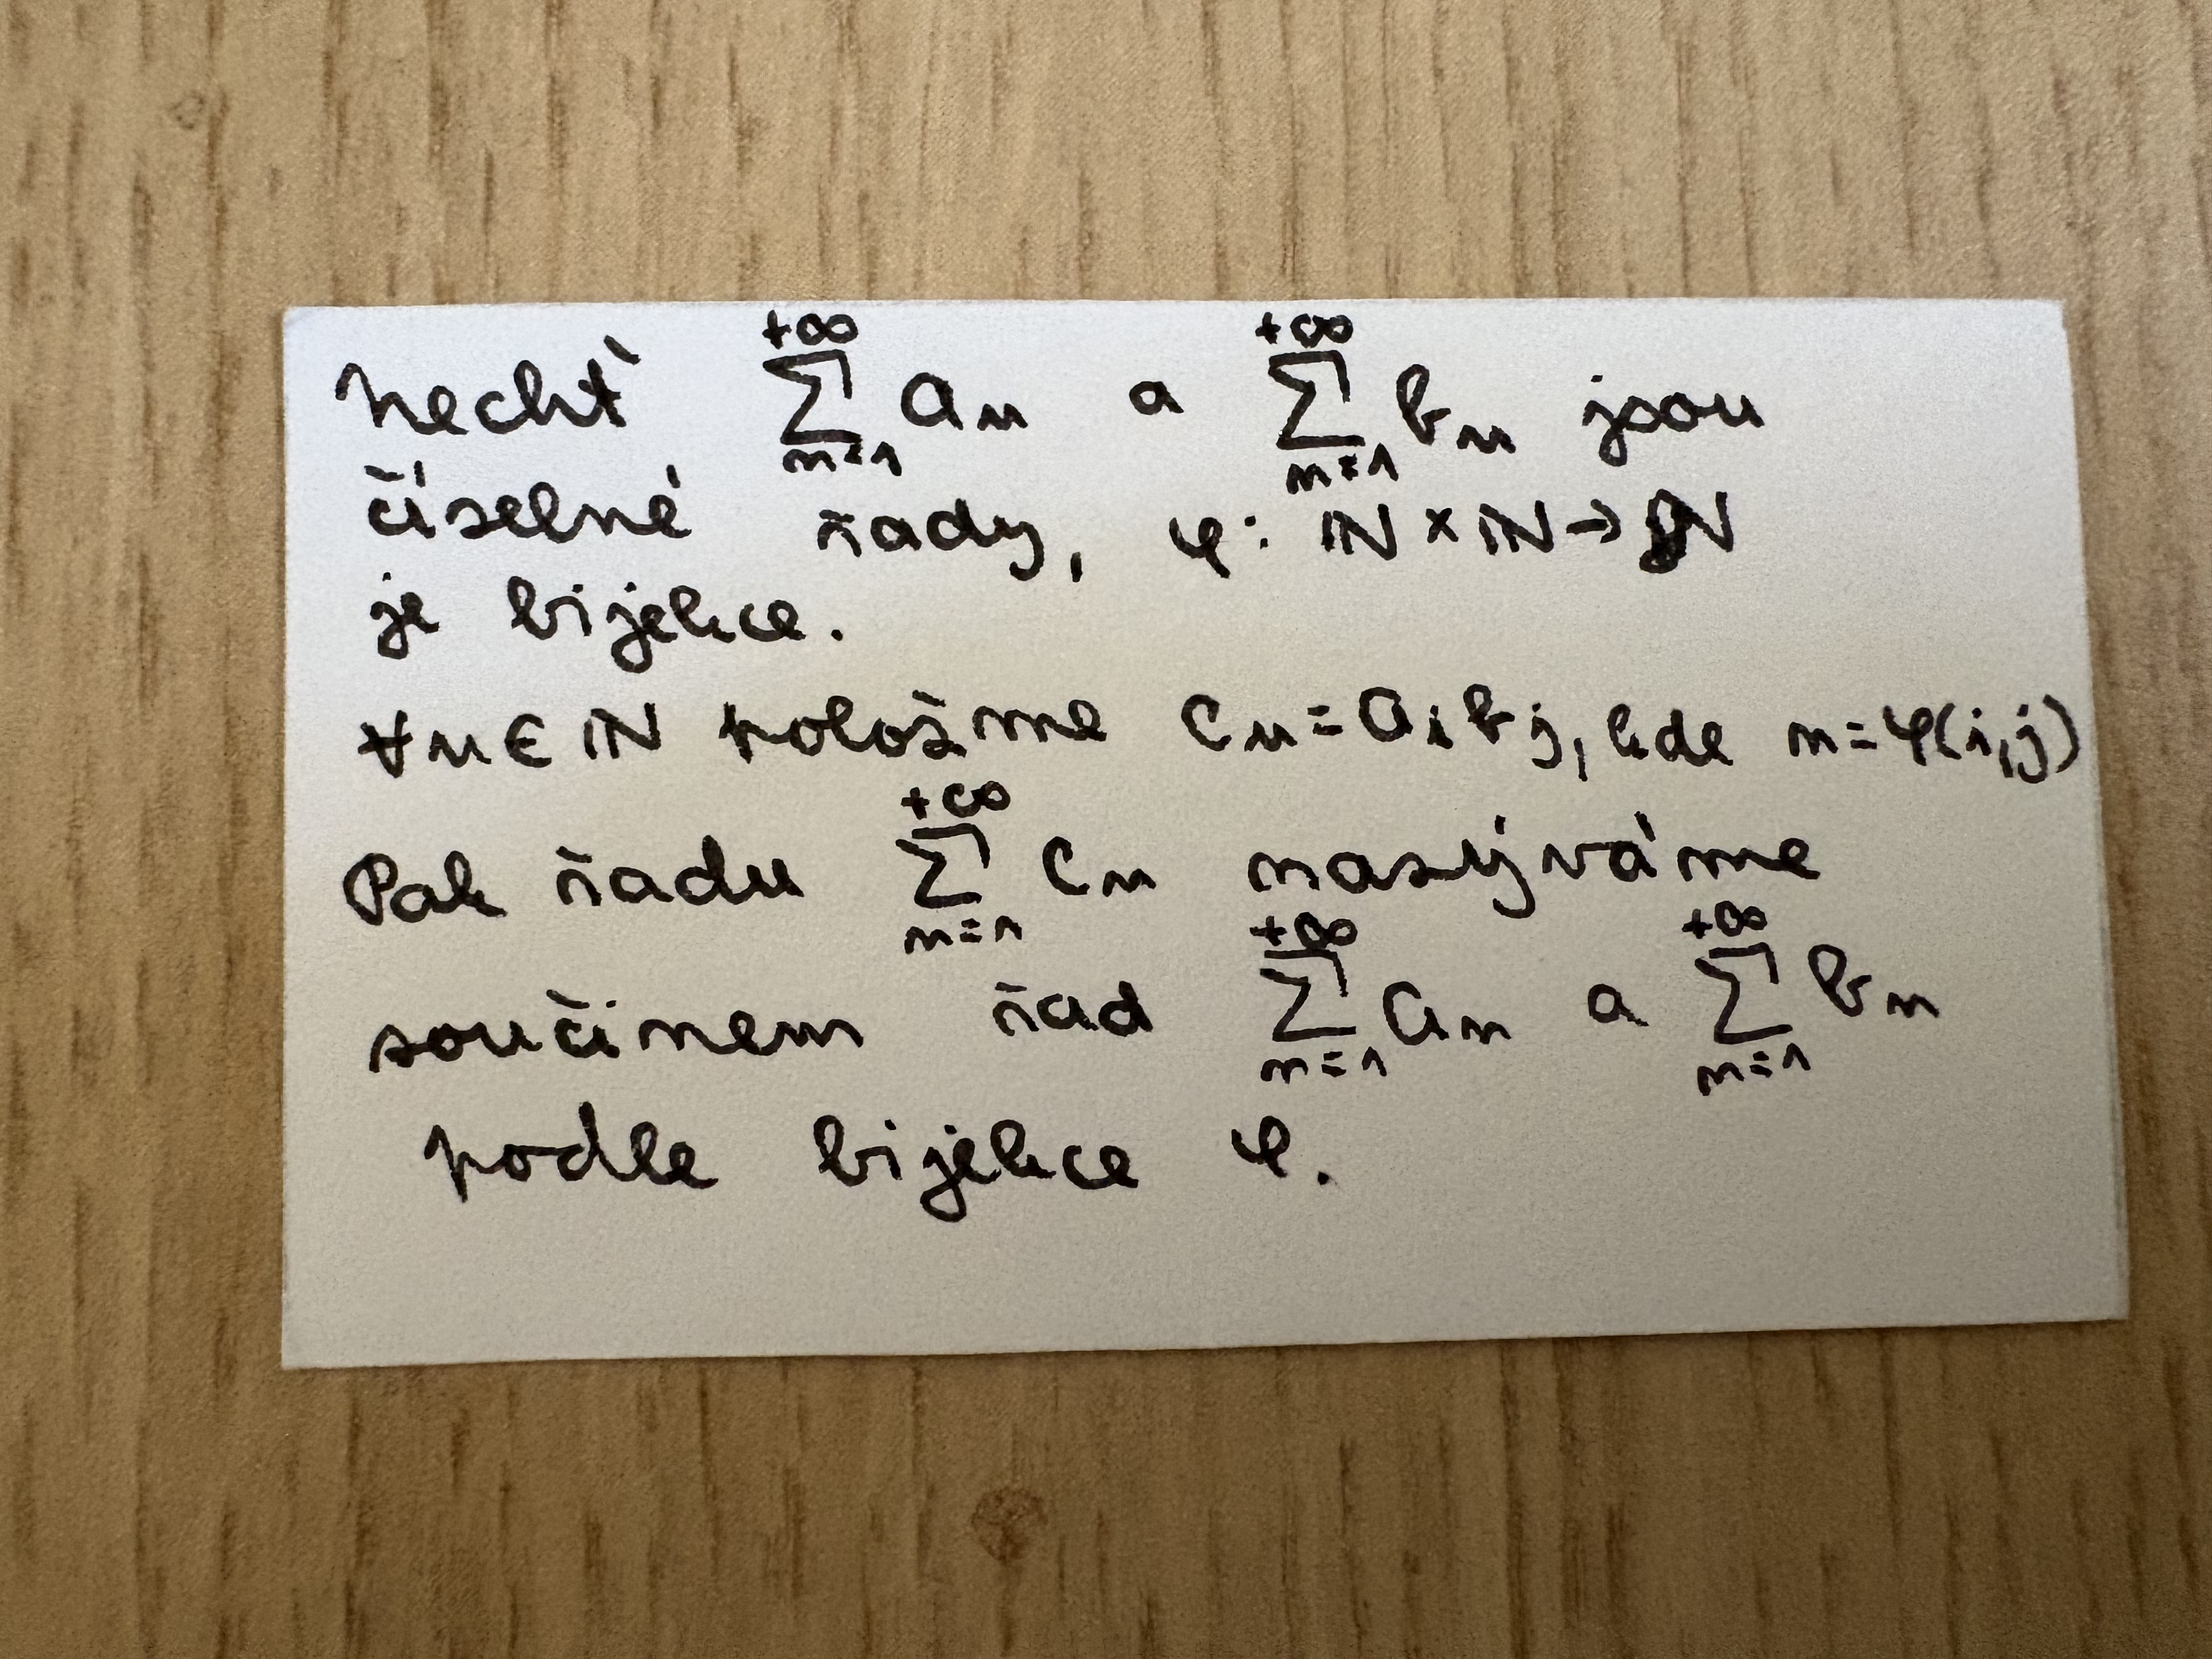 Nechť $\sum_{n=1}^{+\infty} a_n$ a $\sum_{n=1}^{+\infty} b_n$ jsou
číselné řady, φ: ℕ × ℕ → ℕ
je bijekce.
∀n ∈ ℕ položme $c_n = a_i b_j$, kde n = φ(i,j)
Pak řadu $\sum_{n=1}^{+\infty} c_n$ nazýváme
součinem řad $\sum_{n=1}^{+\infty} a_n$ a $\sum_{n=1}^{+\infty} b_n$
podle bijekce φ.